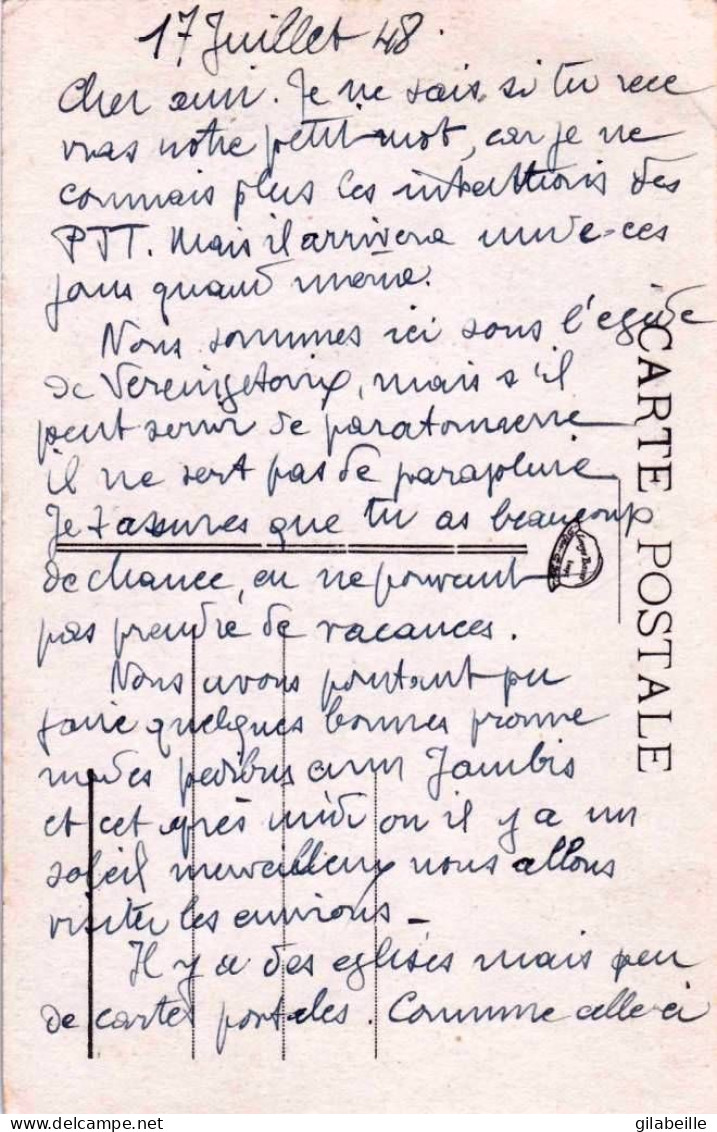 17 Juillet 48.
Cher ami. Je ne sais si tu rece
vras notre petit mot, car je ne
connais plus les intentions des
PTT. Mais il arrivera un de ces
jours quand même.
Nous sommes ici sous l'égide
de Vercingetorix, mais s'il
peut servir de paratonnerre
il ne sert pas de parapluie
Je t'assures que tu as beaucoup
de chance, en ne pouvant
pas prendre de vacances.
Nous avons pourtant pu
faire quelques bonnes prome
nades pedibus cum jambis
et cet après midi où il y a un
soleil merveilleux nous allons
visiter les environs -
Il y a des eglises mais peu
de cartes postales. Comme celle ci
CARTE POSTALE
www.delcampe.net
gilabeille